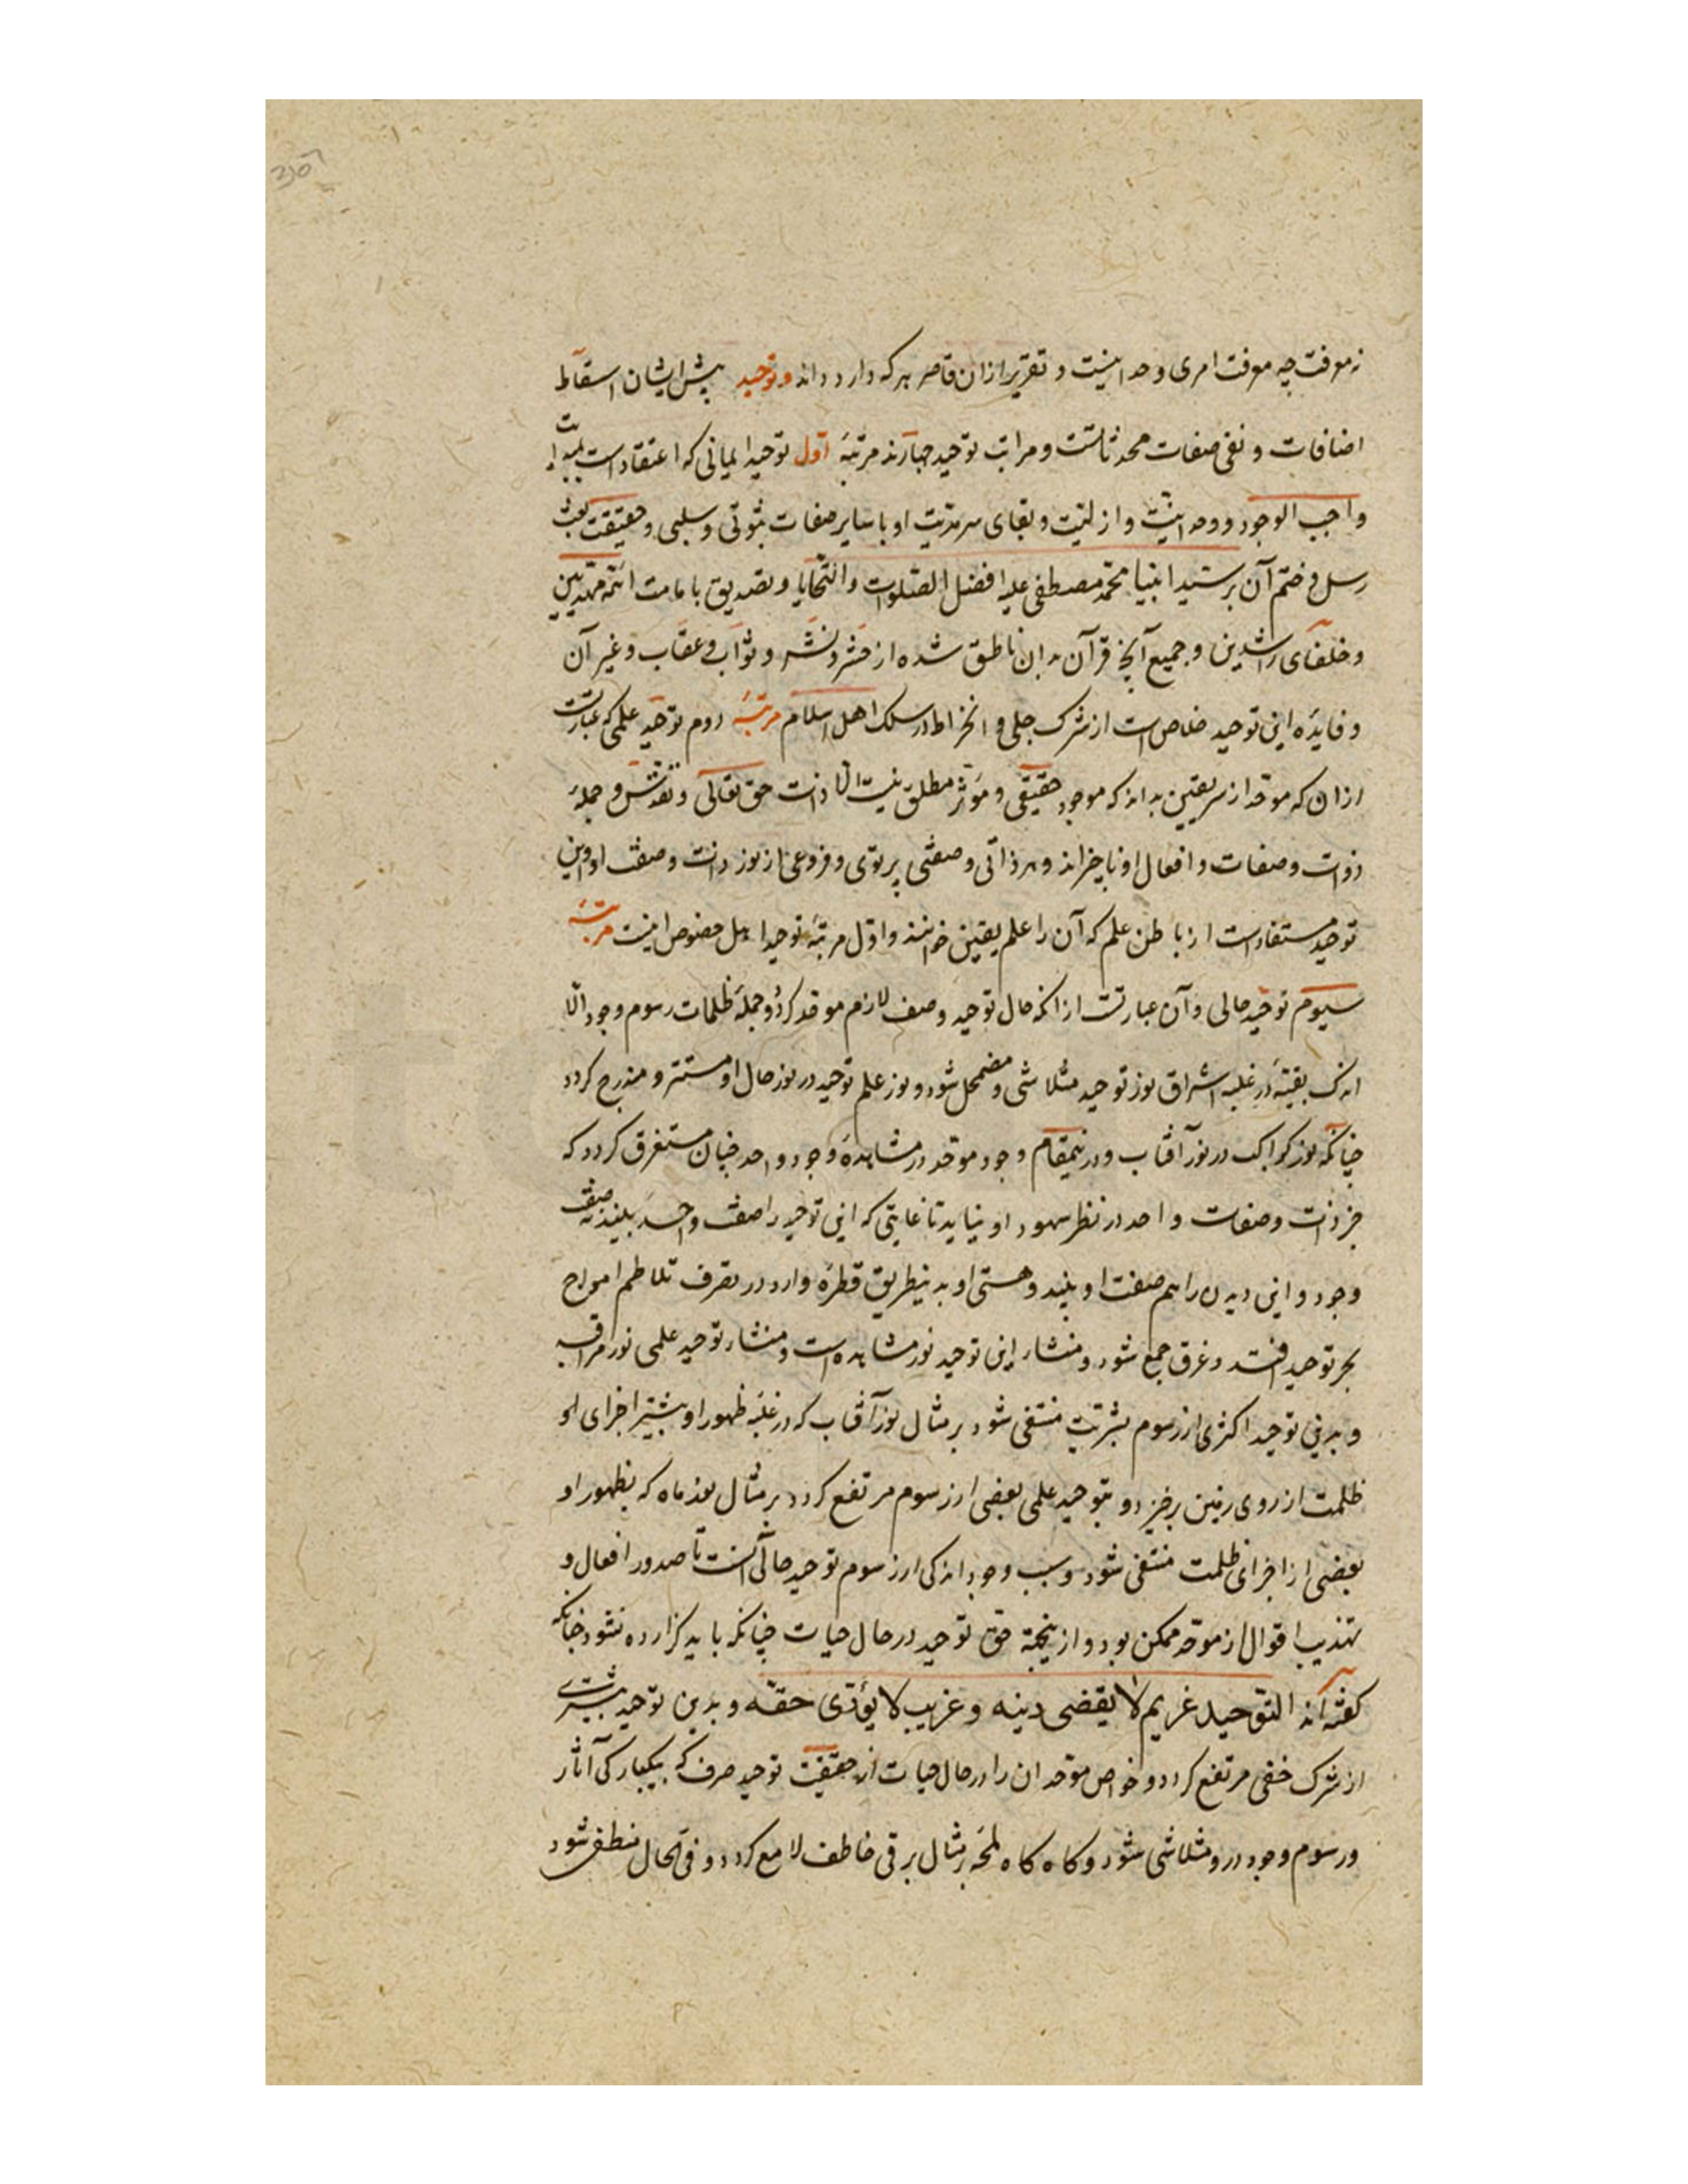 نه موقت چه موقت امری وحدانیت و تقریر ازان قاصر هر که دارد داند و توحید پیش ایشان اسقاط
اضافات و نفی صفات محدثاتست و مراتب توحید چهارند مرتبهٔ اول توحید ایمانی که اعتقادست
واجب الوجود و وحدانیّت و ازلیّت و بقای سرمدیّت او با سایر صفات ثبوتی و سلبی و حقیقت بعث
رسل و ختم آن بر سیّد انبیا محمّد مصطفی علیه افضل الصّلوات والتّحایا و تصدیق بامامت ائمّه مهتدیین
و خلفای راشدین و جمیع آنچ قرآن بدان ناطق شده از حشر و نشر و ثواب و عقاب و غیر آن
و فایدهٔ این توحید خلاص است از شرک جلی و انخراط در سلک اهل اسلام مرتبهٔ دوم توحید علمی که عبارتست
ازان که موحّد از سر یقین بداند که موجود حقیقی و مؤثر مطلق نیست الّا ذات حق تعالی و تقدّس و جملهٔ
ذوات و صفات و افعال او ناچیزاند و هر ذاتی و صفتی پرتوی و فروعی از نور ذات و صفت او و این
توحید مستفادست از باطن علم که آن را علم یقین خوانند و اوّل مرتبهٔ توحید اهل خصوص اینست مرتبهٔ
سیوم توحید حالی و آن عبارتست ازانکه حال توحید وصف لازم موحد گردد و جملهٔ ظلمات رسوم وجود الّا
اندک بقیّهٔ در غلبه اشراق نور توحید متلاشی و مضمحل شود و نور علم توحید در نور حال او مستتر و مندرج گردد
چنانکه نور کواکب در نور آفتاب و درینمقام وجود موحد در مشاهدهٔ وجود واحد چنان مستغرق گردد که
جز ذات و صفات واحد در نظر سهود او نیاید تا غایتی که این توحید را صفت واحد بیند نه صفت
وجود و این دیدن را هم صفت او بیند و هستی او بدینطریق قطره وار در تصرف تلاطم امواج
بحر توحید افتد و غرق جمع شود و منشاء این توحید نور مشاهده است و منشاء توحید علمی نور مراقبه
و بدین توحید اکثری از رسوم بشریّت منتفی شود بر مثال نور آفتاب که در غلبهٔ ظهور او بیشتر اجزای او
ظلمت از روی زمین برخیزد و بتوحید علمی بعضی از رسوم مرتفع گردد بر مثال نور ماه که بظهور او
بعضی از اجزای ظلمت منتفی شود و سبب وجود اندکی از رسوم توحید حالی آنست تا صدور افعال و
تهذیب اقوال از موحّد ممکن بود و ازینجهة حق توحید در حال حیات چنانکه باید گزارده نشود چنانکه
گفته‌اند التوحید غریم لا یقضی دینه و غریب لا یؤدّی حقّه و بدین توحید بیشتری
از شرک خفی مرتفع گردد و خواص موحدان را در حال حیات از حقیقت توحید صرف که بیکبارگی آثار
و رسوم وجود درو متلاشی شود و گاه گاه لمحهٔ بر مثال برقی خاطف لامع گردد و فی الحال منطفی شود